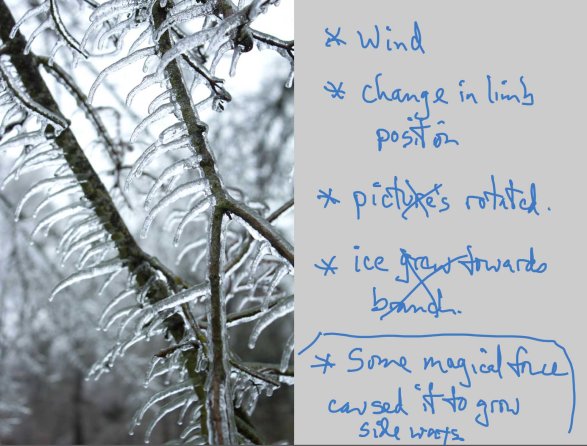 * Wind
* change in limb
position
* picture's rotated.
* ice grow towards
branch.
* Some magical force
caused it to grow
side ways